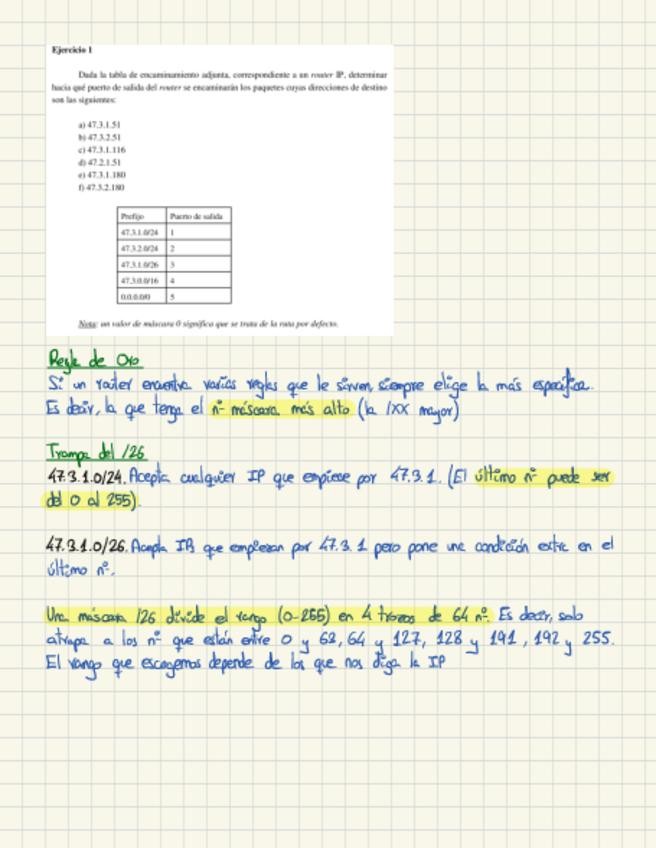 Ejercicio 1
Dada la tabla de encaminamiento adjunta, correspondiente a un router IP, determinar
hacia qué puerto de salida del router se encaminarán los paquetes cuyas direcciones de destino
son las siguientes:
a) 47.3.1.51
b) 47.3.2.51
c) 47.3.1.116
d) 47.2.1.51
e) 47.3.1.180
f) 47.3.2.180
Prefijo Puerto de salida
47.3.1.0/24 1
47.3.2.0/24 2
47.3.1.0/26 3
47.3.0.0/16 4
0.0.0.0/0 5
Nota: un valor de máscara 0 significa que se trata de la ruta por defecto.
Regla de Oro
Si un router encuentra varias reglas que le sirven, siempre elige la más específica.
Es decir, la que tenga el nº máscara más alto (la /XX mayor)
Trampa del /26
47.3.1.0/24. Acepta cualquier IP que empiece por 47.3.1. (El último nº puede ser
del 0 al 255).
47.3.1.0/26. Acepta IPs que empiezan por 47.3.1 pero pone una condición extra en el
último nº.
Una máscara /26 divide el rango (0-255) en 4 trozos de 64 nº. Es decir, solo
atrapa a los nº que están entre 0 y 63, 64 y 127, 128 y 191, 192 y 255.
El rango que escogemos depende de los que nos diga la IP